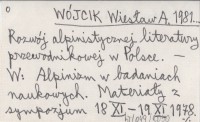 o WÓJCIK Wiesław A. 1981...
Rozwój alpinistycznej literatury
przewodnikowej w Polsce. —
W: Alpinizm w badaniach
naukowych. Materiały z
sympozjum 18 XI – 19 XI 1978.